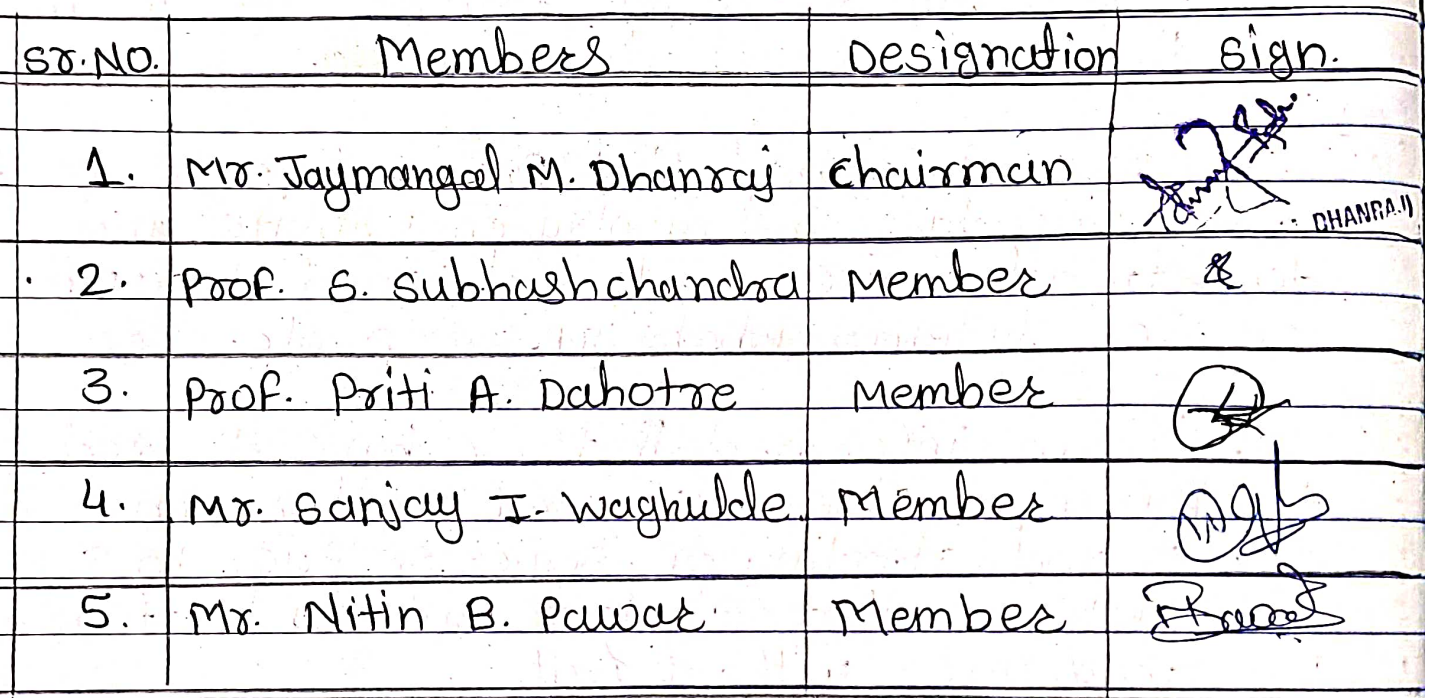 Sr.No. Members Designation Sign.
1. Mr. Jaymangal M. Dhanraj Chairman
DHANRAJ
2. Prof. S. Subhashchandra Member
3. Prof. Priti A. Dahotre Member
4. Mr. Sanjay I. Waghulde Member
5. Mr. Nitin B. Pawar Member